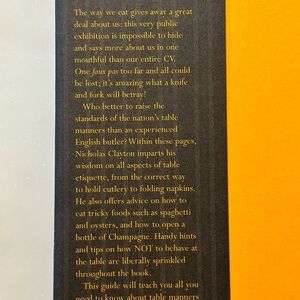 The way we eat gives away a great
deal about us: this very public
exhibition is impossible to hide
and says more about us in one
mouthful than our entire CV.
One faux pas too far and all could
be lost; it's amazing what a knife
and fork will betray!
Who better to raise the
standards of the nation's table
manners than an experienced
English butler? Within these pages,
Nicholas Clayton imparts his
wisdom on all aspects of table
etiquette, from the correct way
to hold cutlery to folding napkins.
He also offers advice on how to
eat tricky foods such as spaghetti
and oysters, and how to open a
bottle of Champagne. Handy hints
and tips on how NOT to behave at
the table are liberally sprinkled
throughout the book.
This guide will teach you all you
need to know about table manners